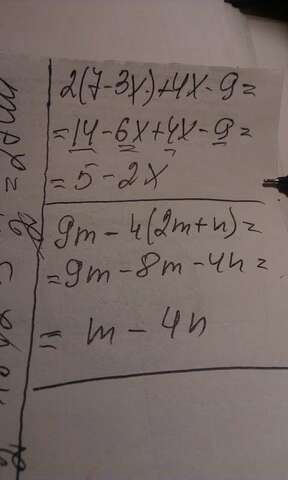 2(7-3x)+4x-9=
=14-6x+4x-9=
=5-2x
9m-4(2m+n)=
=9m-8m-4n=
= m-4n